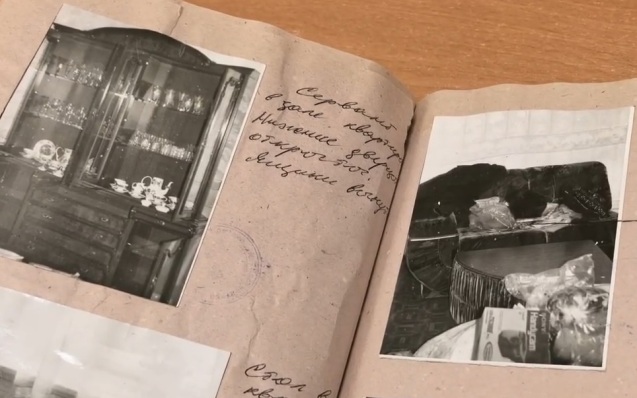 Сервант
в зале квартир
Нижние двери
открыты.
Ящики выну
Стол в
ква